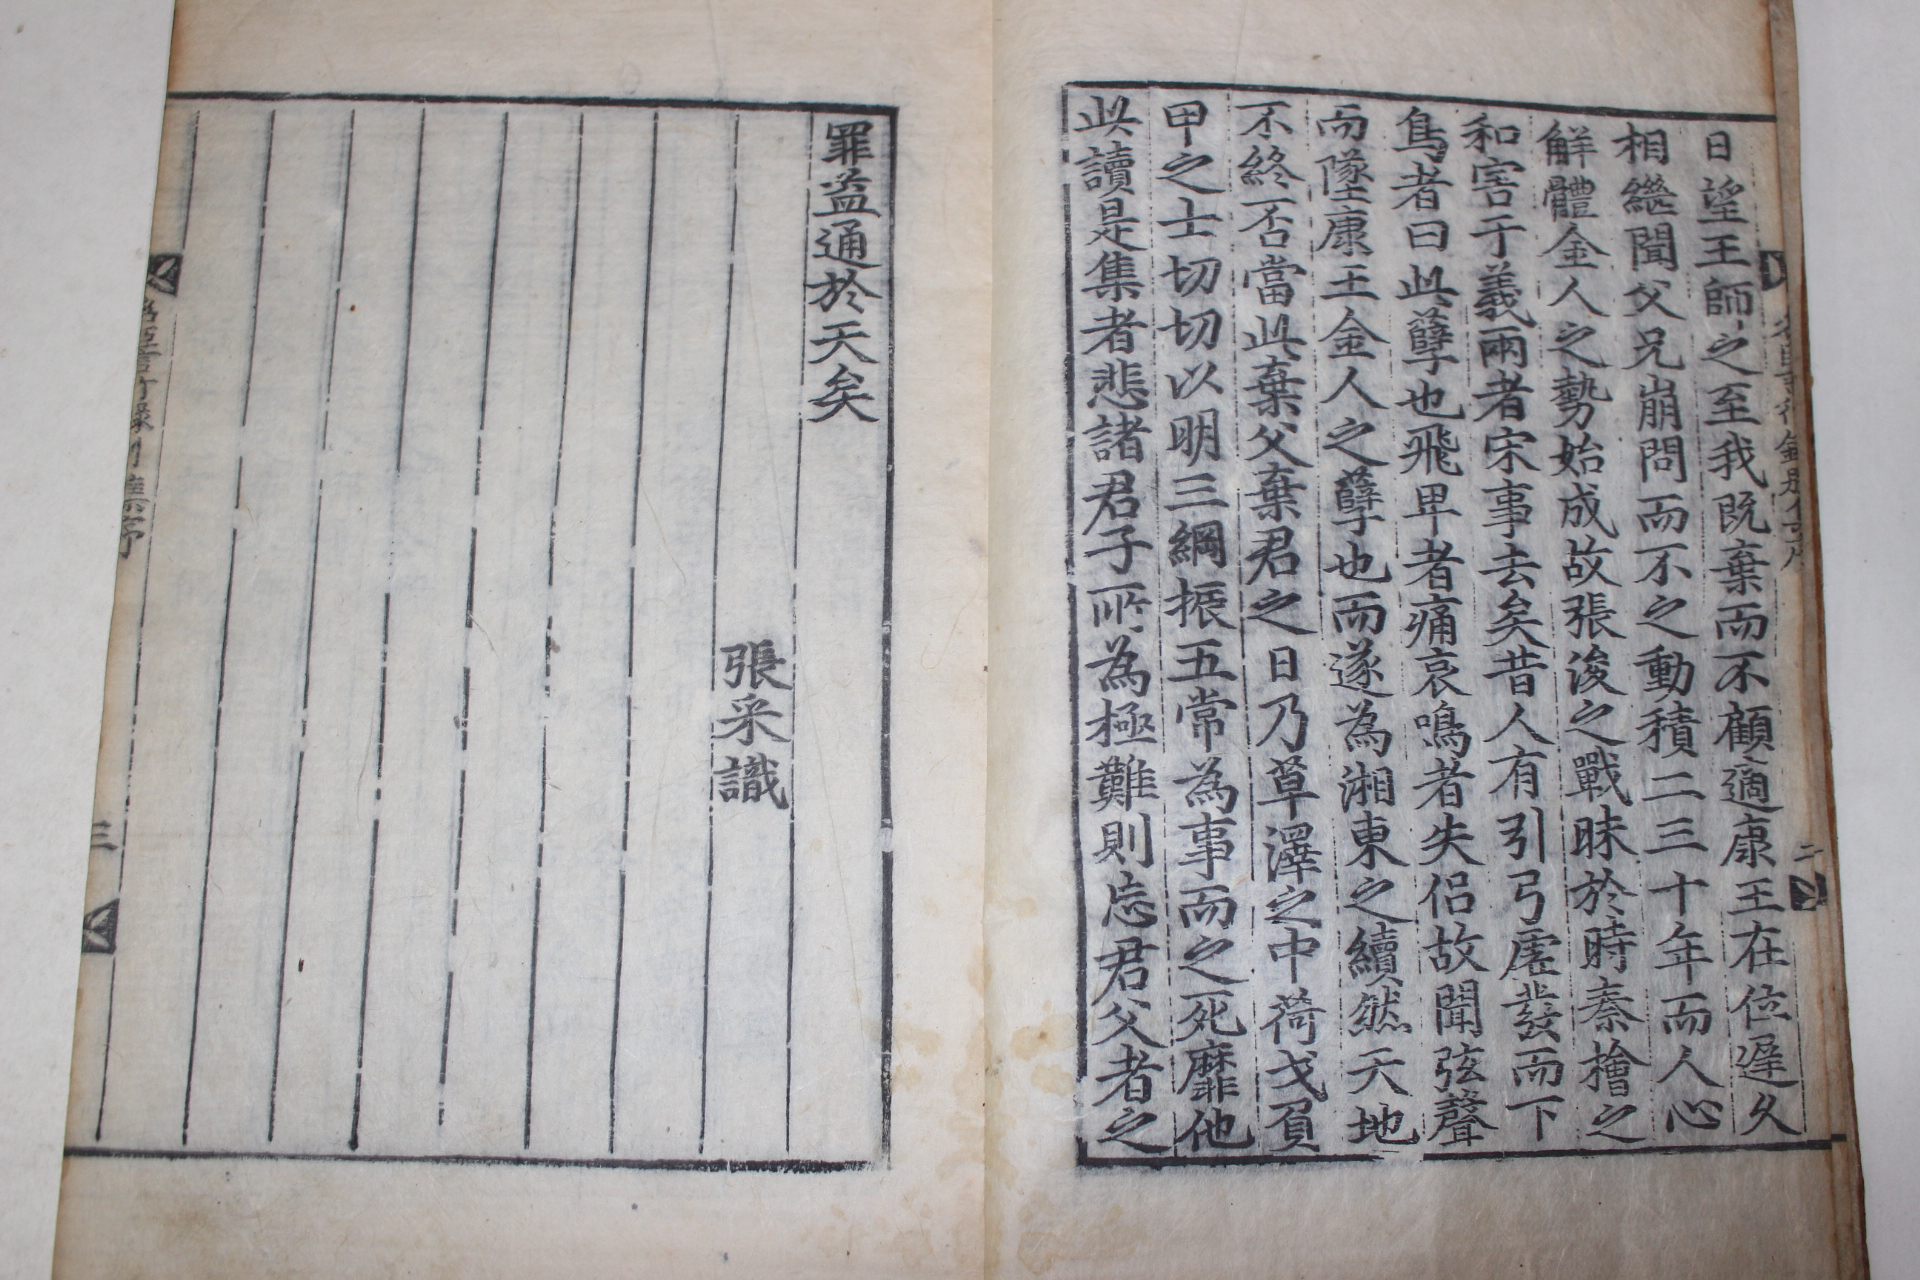 日望王師之至我既棄而不顧適康王在位遲久
相繼聞父兄崩問而不之動積二三十年而人心
解體金人之勢始成故張浚之戰昧於時秦檜之
和害于義兩者宋事去矣昔人有引弓虛發而下
鳥者曰此孽也飛卑者痛哀鳴者失侶故聞弦聲
而墜康王金人之孽也而遂為湘東之續然天地
不終否當此棄父棄君之日乃草澤之中荷戈負
甲之士切切以明三綱振五常為事而之死靡他
此讀是集者悲諸君子所為極難則忘君父者之
罪益通於天矣
張采識
三
二